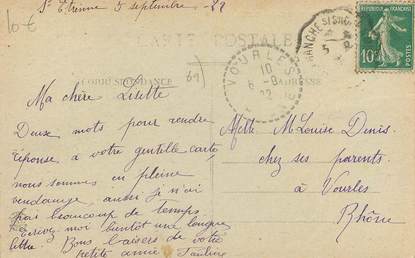 10€
St Etienne 5 septembre - 22
CARTE POSTALE
CORRESPONDANCE
ADRESSE
69
Ma chère Lisette
Deux mots pour rendre
réponse à votre gentille carte
nous sommes en pleine
vendange, aussi je n'ai
pas beaucoup de temps
Ecrivez moi bientôt une longue
lettre. Bons baisers de votre
petite amie Pauline
Melle M. Louise Denis.
chez ses parents.
à Vourles
Rhône
VOURLES
10
22
RÉPUBLIQUE FRANÇAISE
10
POSTES